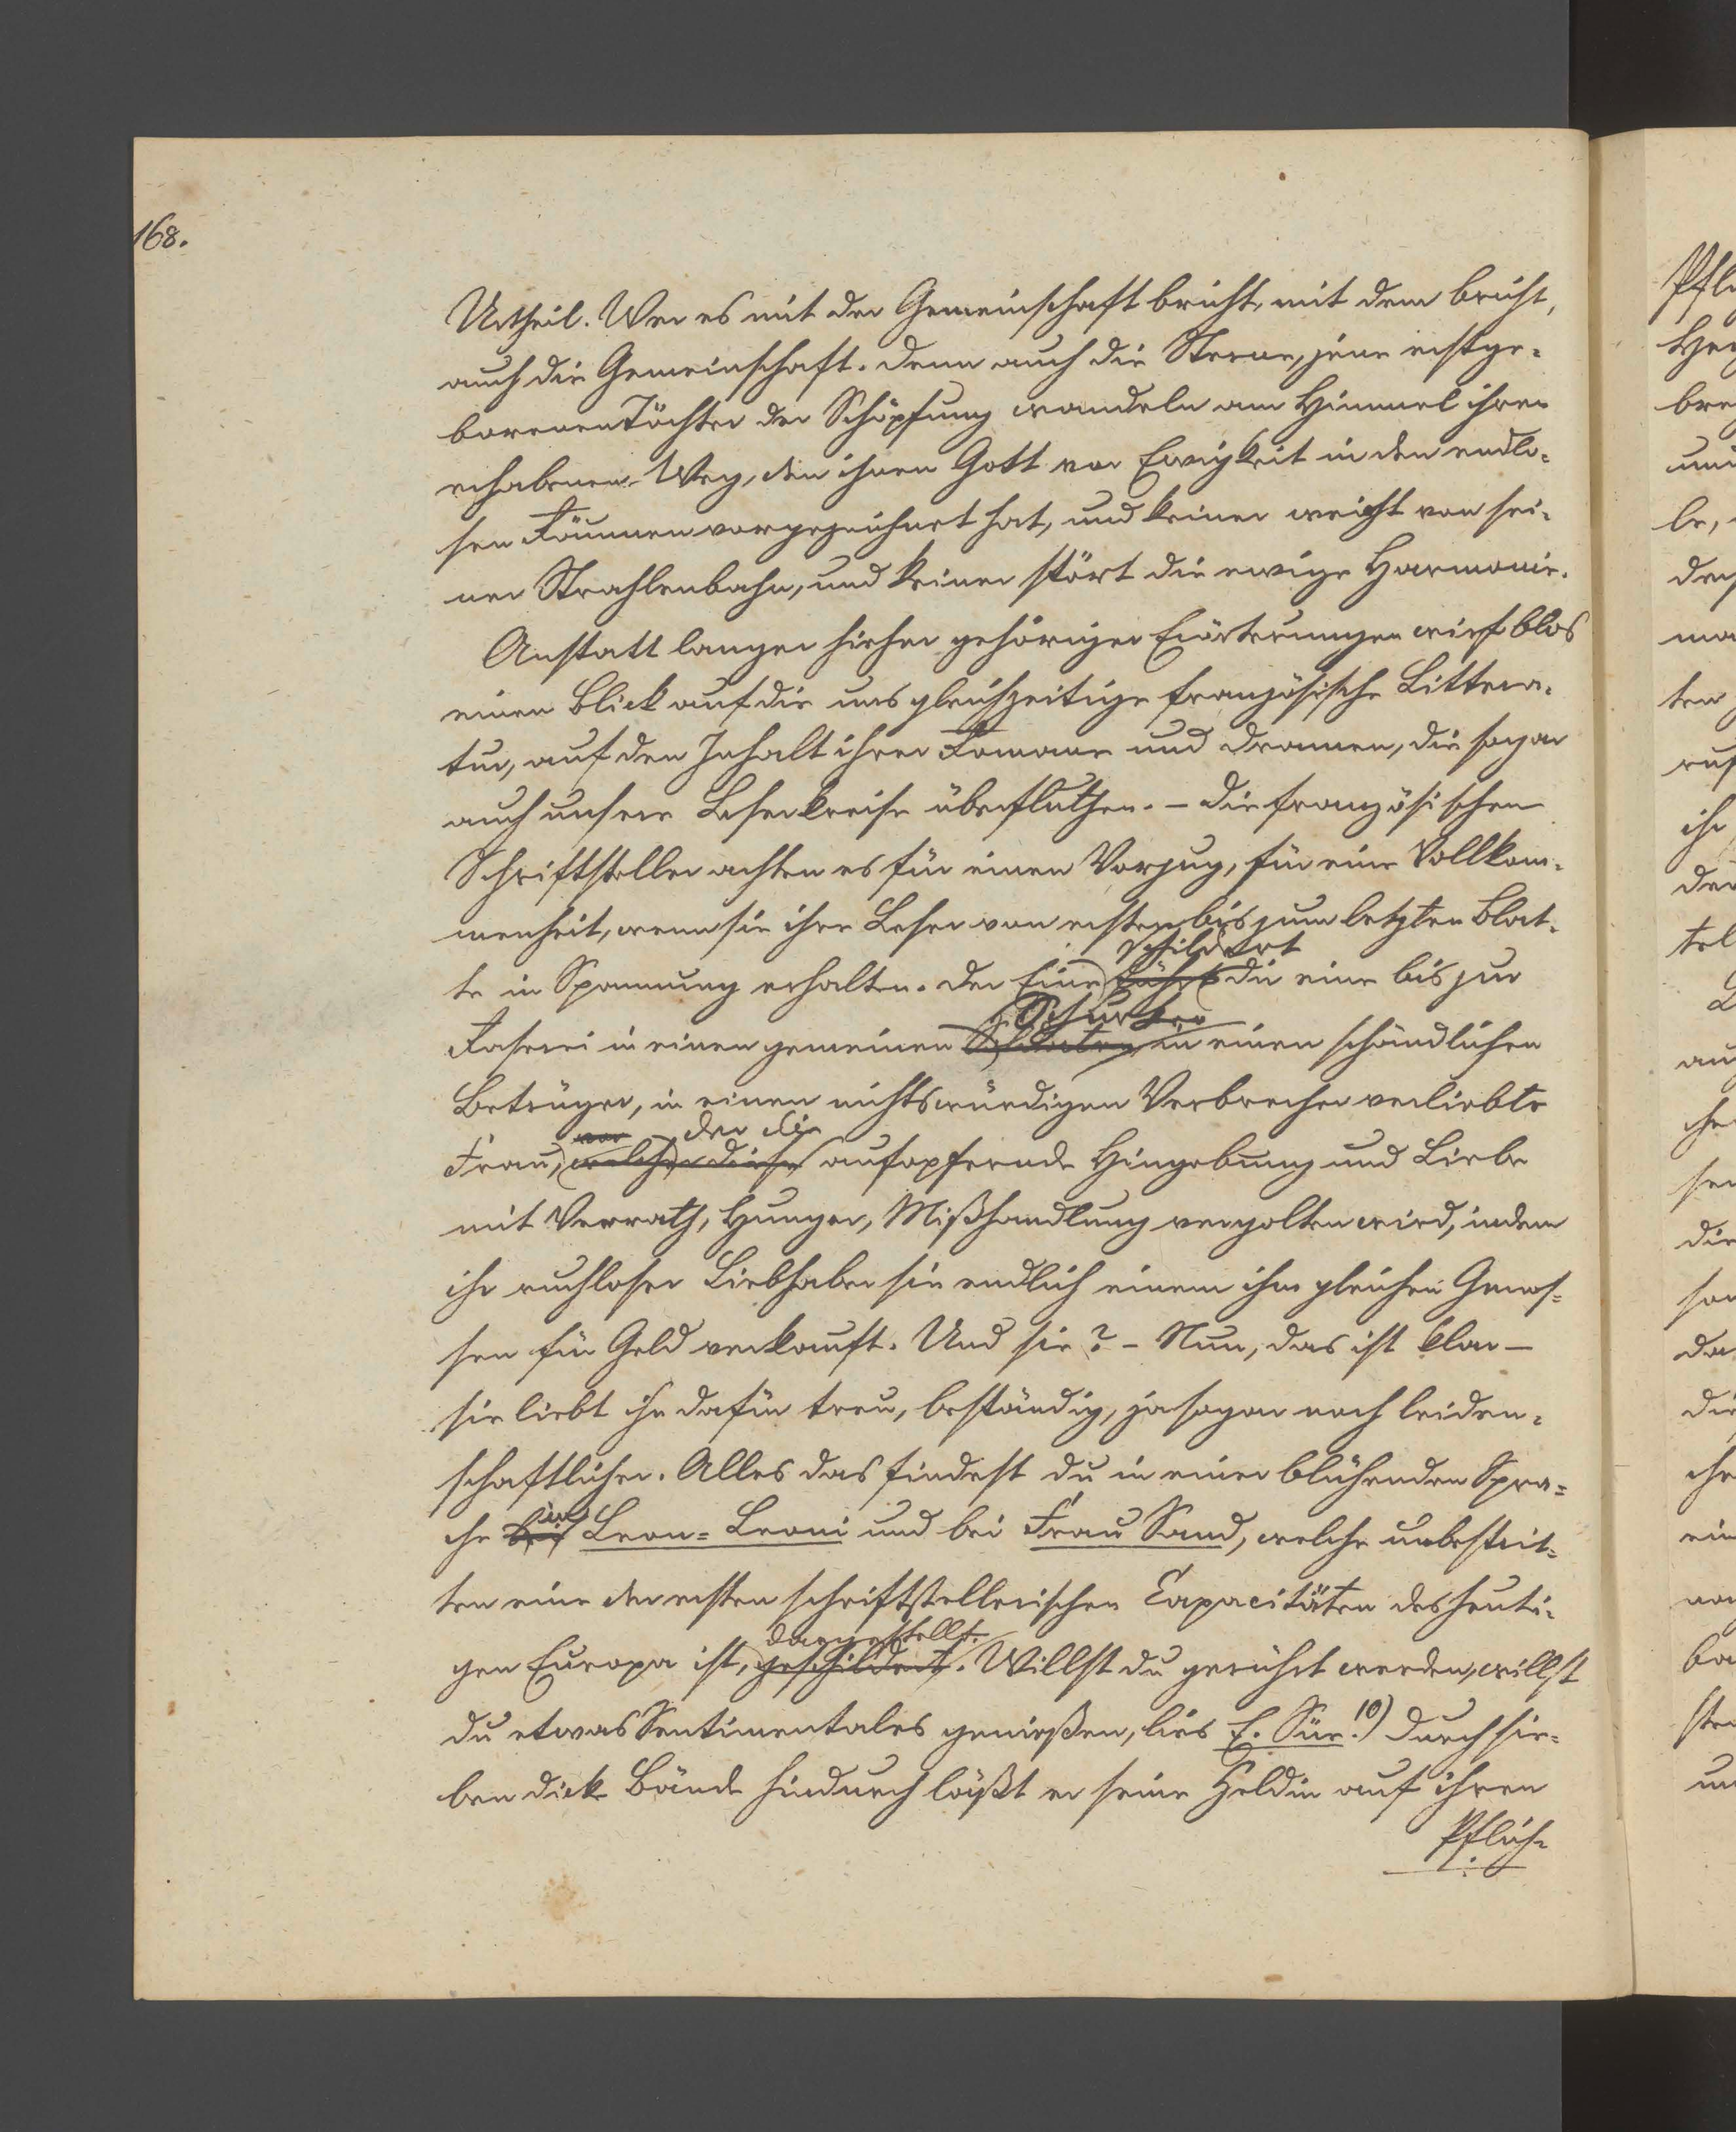 168.
Urtheil. Wer es mit der Gemeinschaft bricht, mit dem bricht,
auch die Gemeinschaft. Denn auch die Sterne, jene erstge-
borenen Töchter der Schöpfung wandeln am Himmel ihren
erhabenen Weg, den ihnen Gott von Ewigkeit in den endlo-
sen Räumen vorgezeichnet hat, und keiner weicht von sei-
ner Strahlenbahn, und keiner stört die ewige Harmonie.
Anstatt langer hieher gehöriger Erörterungen wirf blos
einen Blick auf die uns gleichzeitige französische Littera-
tur, auf den Inhalt ihrer Romane und Dramen, die sogar
auch unsere Lesekreise überfluthen. – Die französischen
Schriftsteller achten es für einen Vorzug, für eine Vollkom-
menheit, wenn sie ihre Leser vom ersten bis zum letzten Blat-
schildert
te in Spannung erhalten. Der Eine führt die eine bis zur
Schurken
Raserei in einen gemeinen in einen schändlichen
Betrüger, in einen nichtswürdigen Verbrecher verliebte
von der die
Frau, welche diese aufopfernde Hingebung und Liebe
mit Verrath, Hunger, Mißhandlung vergolten wird, indem
ihr ruchloser Liebhaber sie endlich einem ihm gleichen Genos-
sen für Geld verkauft. Und sie? – Nun, das ist klar –
sie liebt ihn dafür treu, beständig, ja sogar noch leiden-
schaftlicher. Alles das findest du in einer blühenden Spra-
in
che bei Leon-Leoni und bei Frau Sand, welche unbestrit-
ten eine der ersten schriftstellerischen Capacitäten des heuti-
dargestellt.
gen Europa ist, geschildert. Willst du gerührt werden, willst
du etwas Sentimentales genießen, lies E. Süe! 10) Durch sie-
ben dicke Bände hindurch läßt er seine Heldin auf ihren
Pflich-